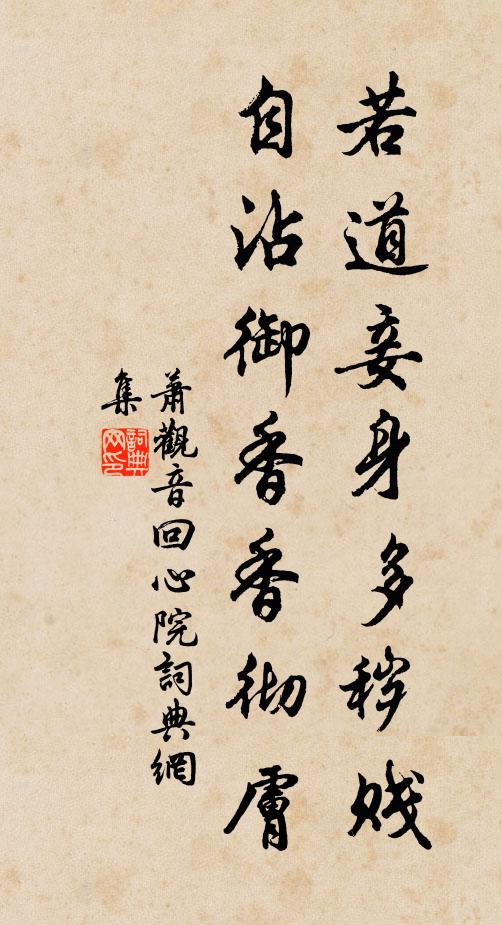 若道妾身多穢賤
自沾御香香彻膚
蕭觀音回心院詞典網
集
詞典
网印